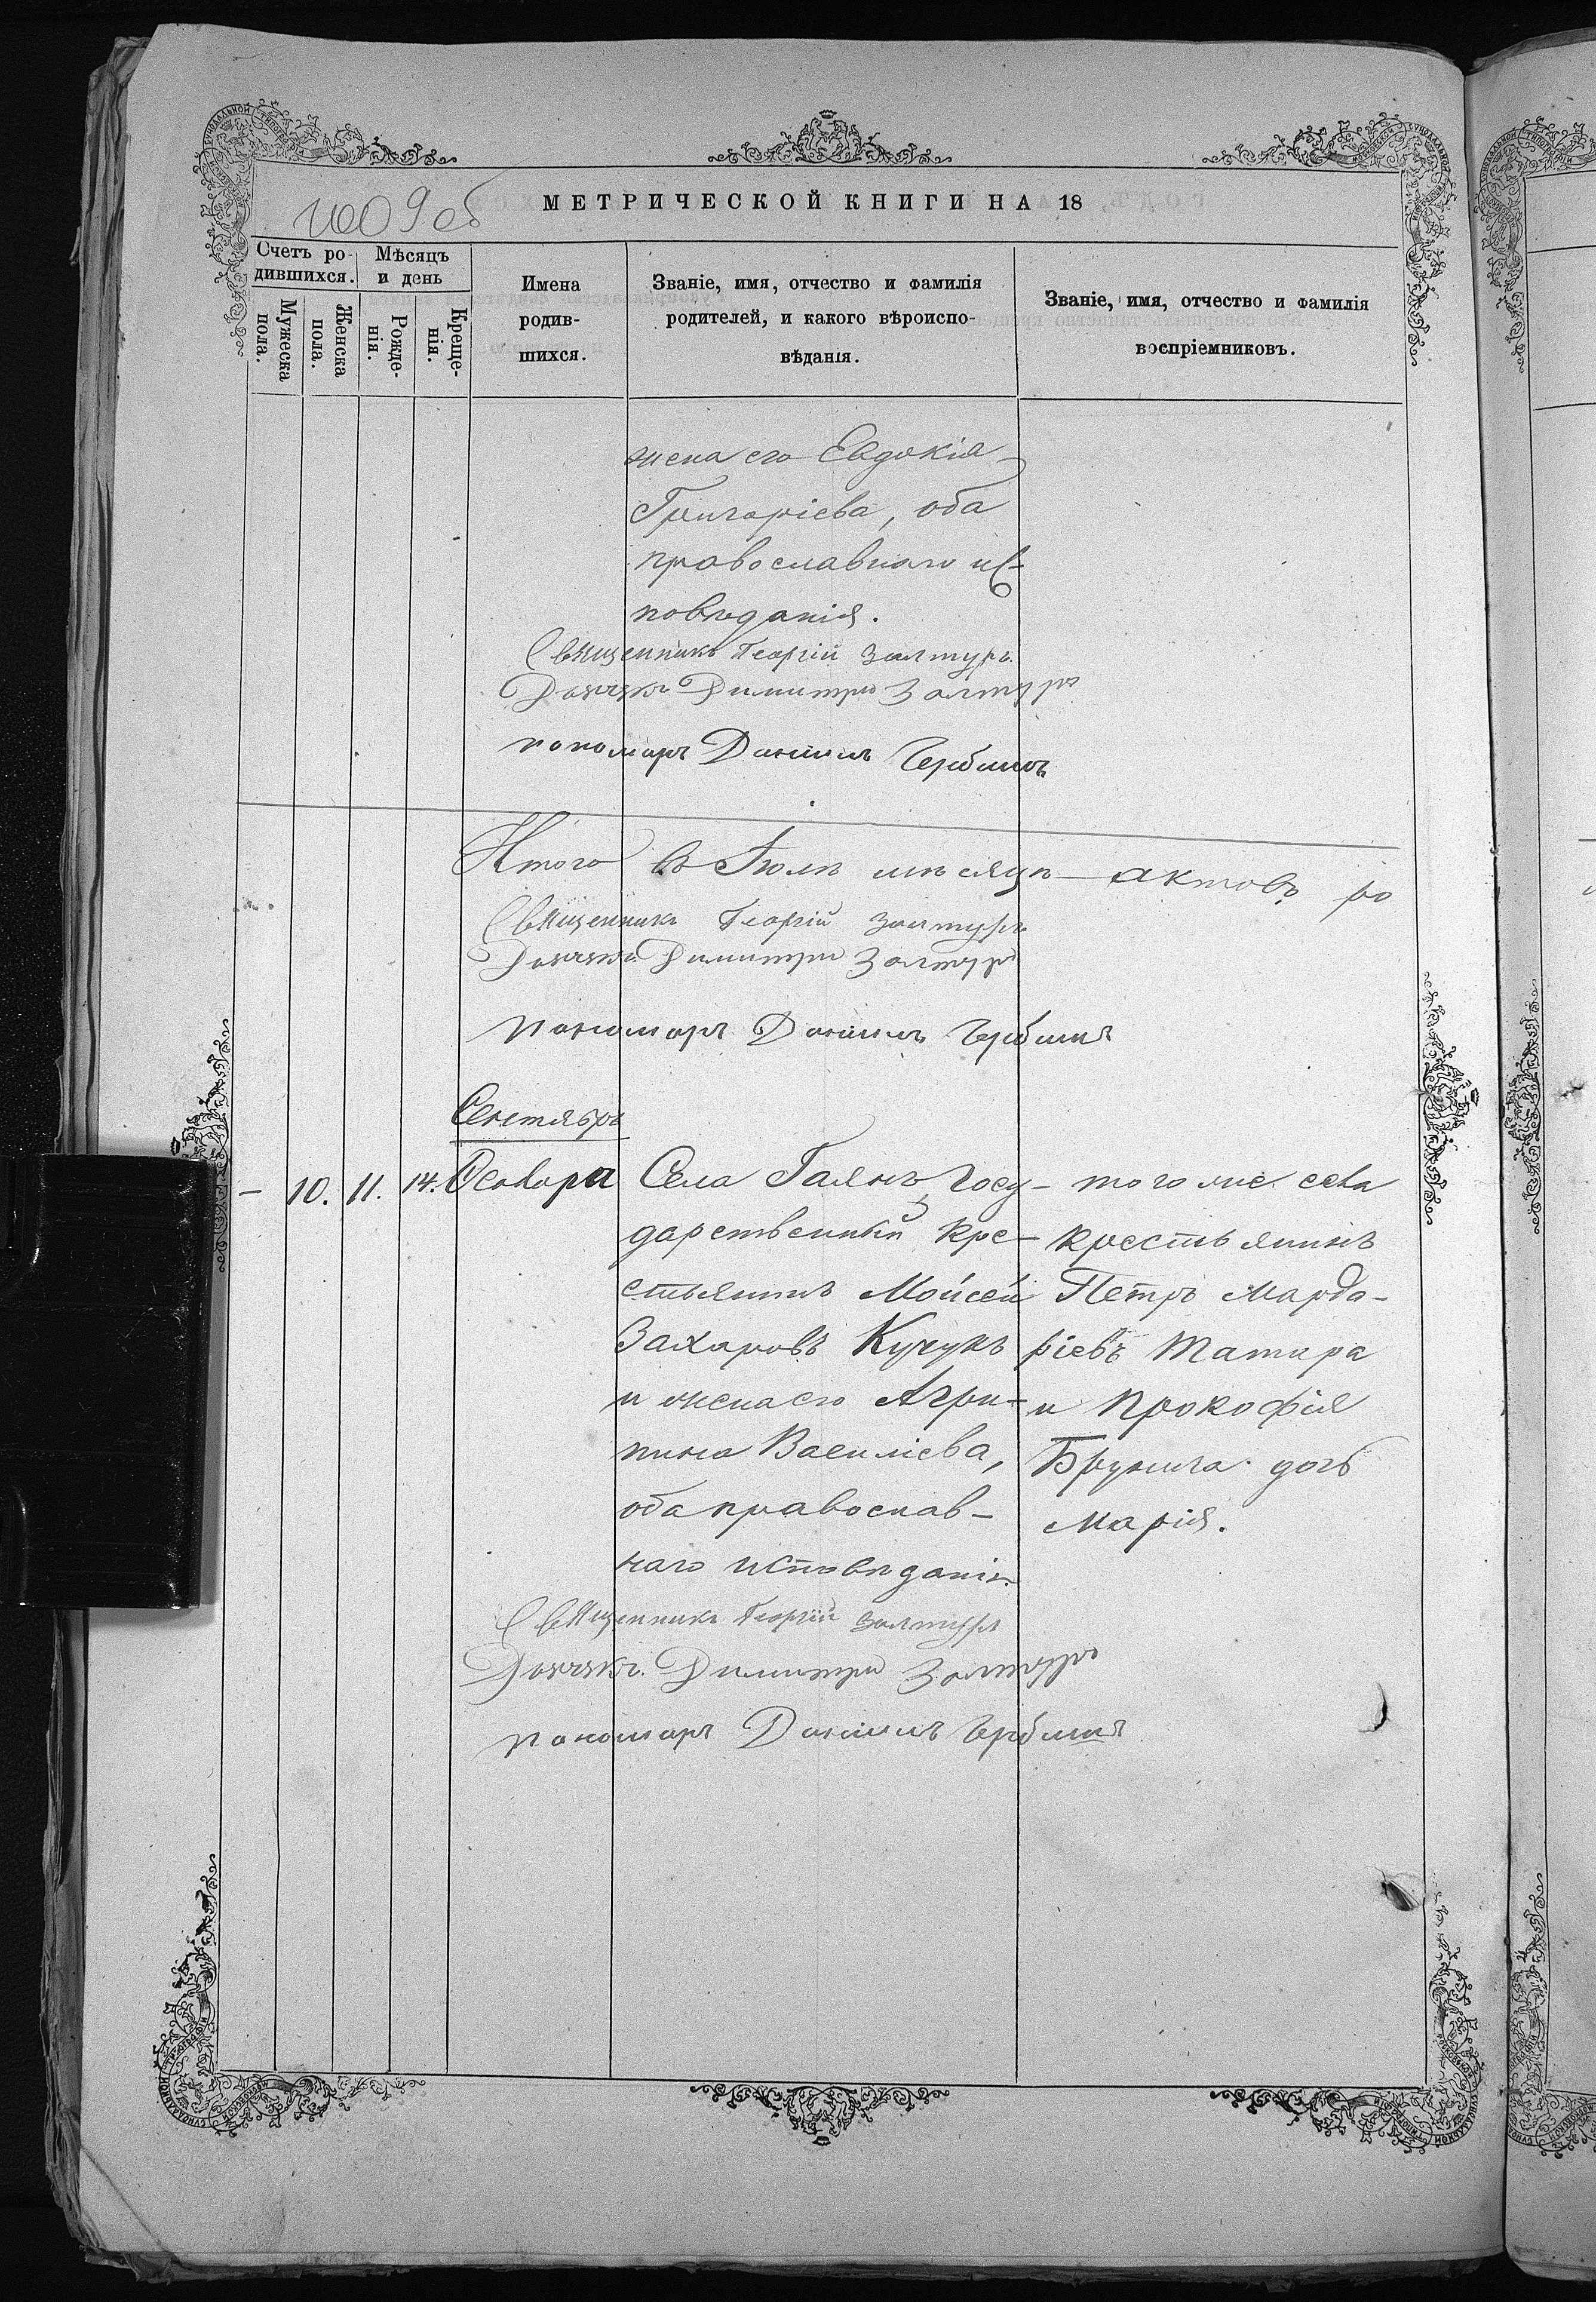 МЕТРИЧЕСКОЙ КНИГИ НА 18
Счетъ ро-
дившихся.
Мѣсяцъ
и день
Мужеска
пола.
Женска
пола.
Рожде-
нія.
Креще-
нія.
Имена
родив-
шихся.
Званіе, имя, отчество и фамилія
родителей, и какого вѣроиспо-
вѣданія.
Званіе, имя, отчество и фамилія
воспріемниковъ.
жена его Евдокія
Григоріева, оба
православнаго ис-
повѣданія.
Священникъ Георгій Залтуръ
Димитрій Залтуръ
пономарь Даниилъ
Итого въ Іюлѣ мѣсяцѣ актовъ ро
Священникъ Георгій Залтуръ
Димитрій Залтуръ
пономарь Даниилъ
Сентябрь
– 10. 11. 14. Ѳеодора
Села Гаянъ, Госу-
дарственный кре-
стьянинъ Мойсей
Захаровъ Кучукъ
и жена его Агри-
пина Василіева,
оба православ-
наго исповѣданія.
того же села
крестьянинъ
Петръ Марда-
ріевъ Татара
и Прокофія
дочь
Марія.
Священникъ Георгій Залтуръ
Димитрій Залтуръ
пономарь Даниилъ